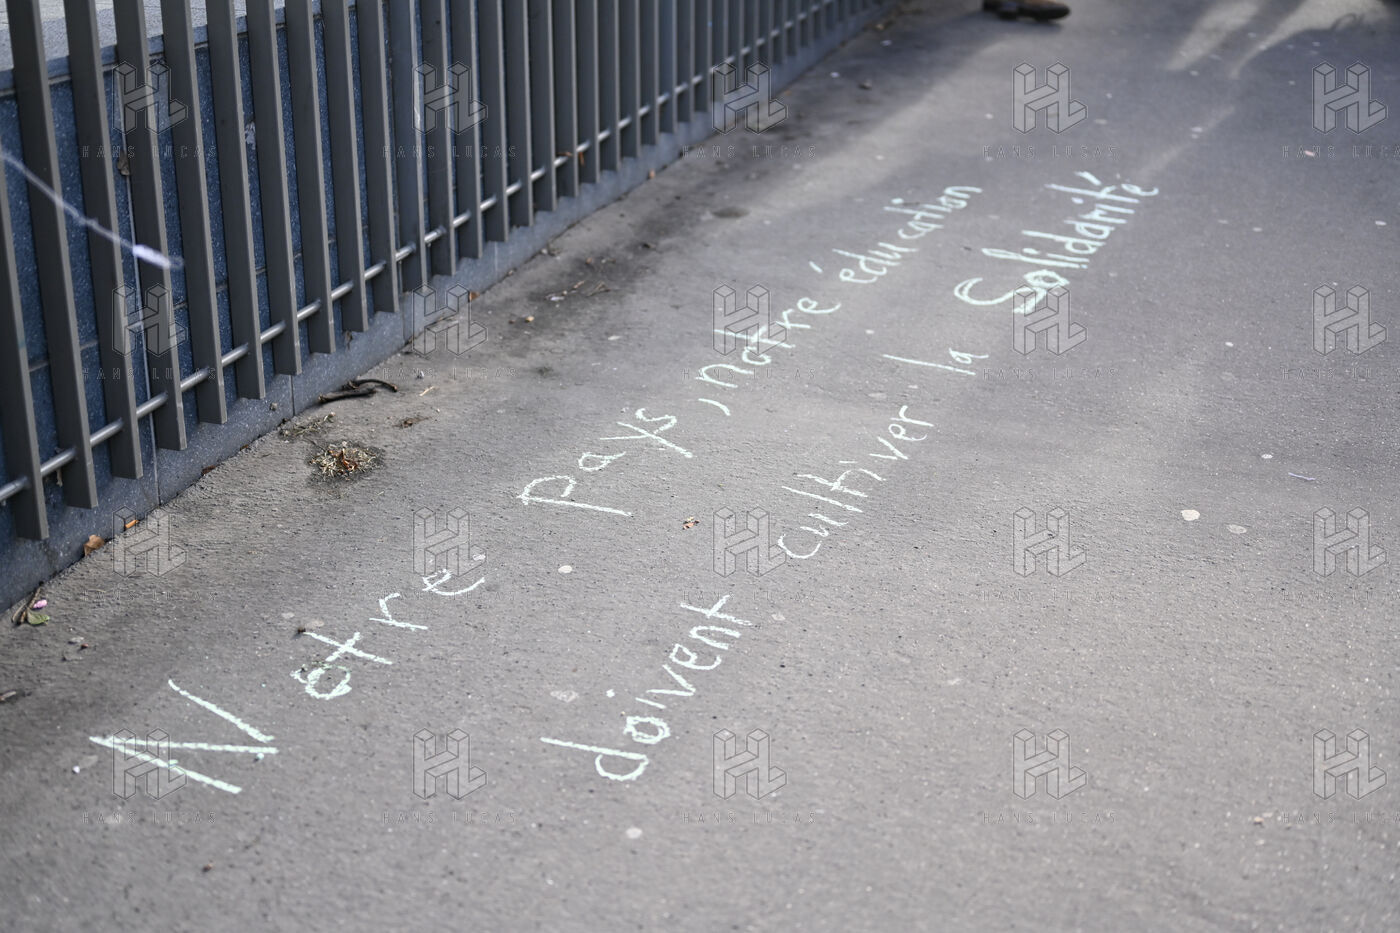 Notre pays, notre éducation
doivent cultiver la Solidarité
HANS LUCAS